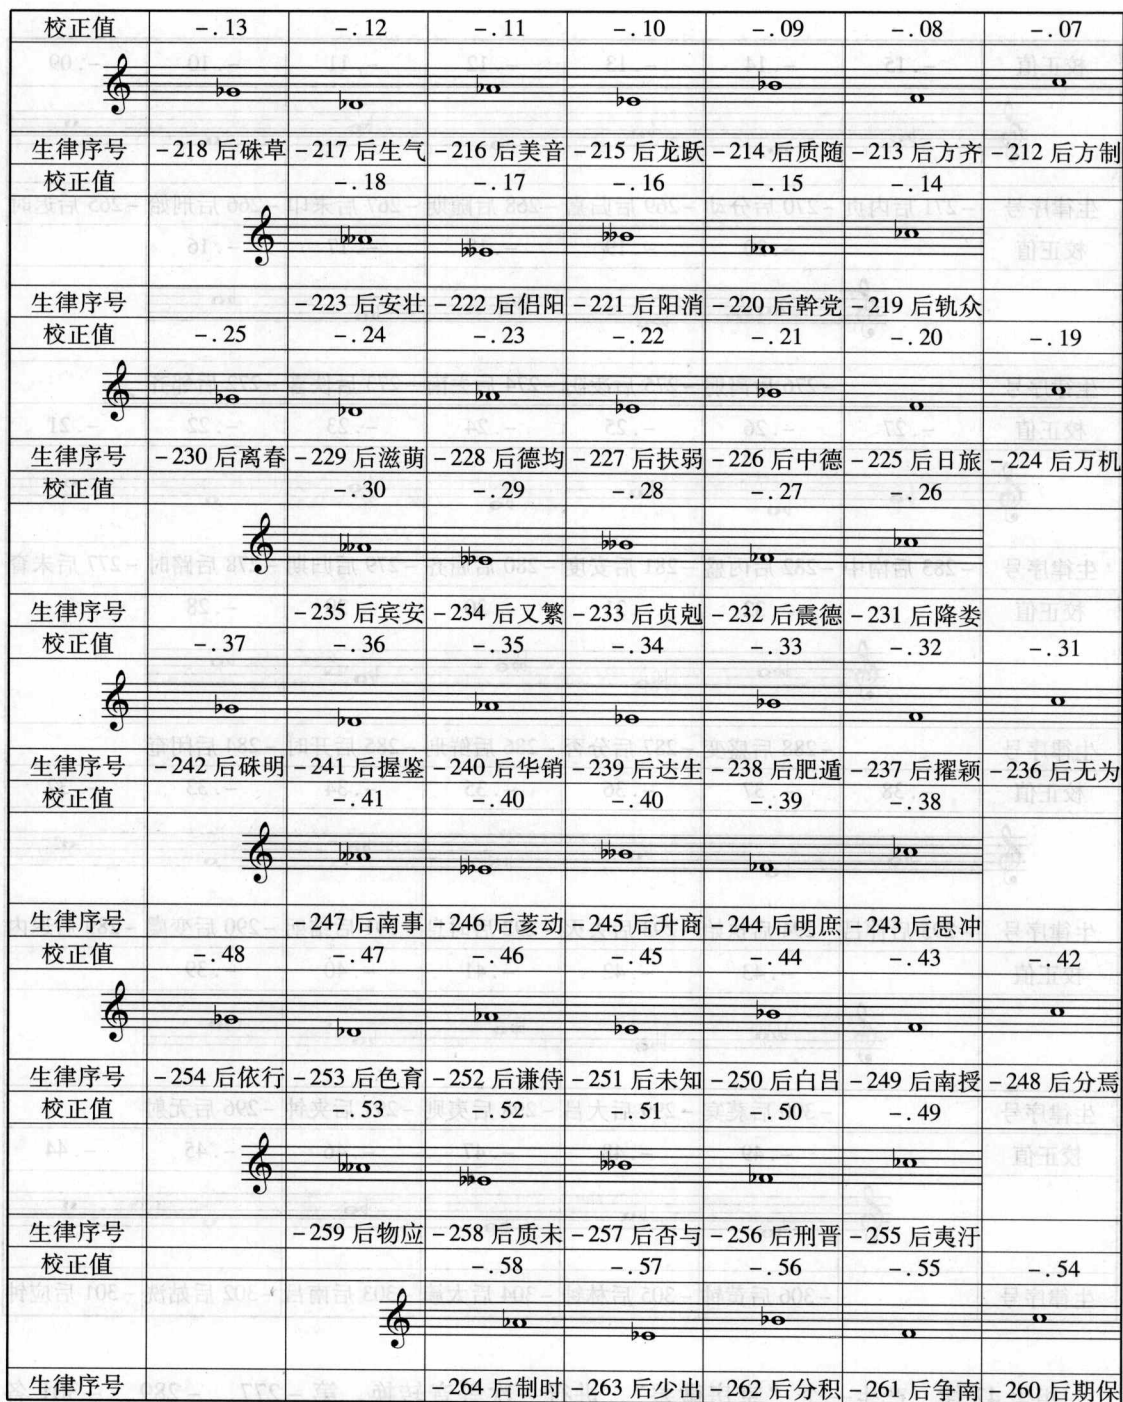 校正值 －.13 －.12 －.11 －.10 －.09 －.08 －.07
生律序号 －218 后硃草 －217 后生气 －216 后美音 －215 后龙跃 －214 后质随 －213 后方齐 －212 后方制
校正值 －.18 －.17 －.16 －.15 －.14
生律序号 －223 后安壮 －222 后侣阳 －221 后阳消 －220 后幹党 －219 后轨众
校正值 －.25 －.24 －.23 －.22 －.21 －.20 －.19
生律序号 －230 后离春 －229 后滋萌 －228 后德均 －227 后扶弱 －226 后中德 －225 后日旅 －224 后万机
校正值 －.30 －.29 －.28 －.27 －.26
生律序号 －235 后宾安 －234 后又繁 －233 后贞剋 －232 后震德 －231 后降娄
校正值 －.37 －.36 －.35 －.34 －.33 －.32 －.31
生律序号 －242 后硃明 －241 后握鉴 －240 后华销 －239 后达生 －238 后肥遁 －237 后擢颖 －236 后无为
校正值 －.41 －.40 －.40 －.39 －.38
生律序号 －247 后南事 －246 后荄动 －245 后升商 －244 后明庶 －243 后思冲
校正值 －.48 －.47 －.46 －.45 －.44 －.43 －.42
生律序号 －254 后依行 －253 后色育 －252 后谦侍 －251 后未知 －250 后白吕 －249 后南授 －248 后分焉
校正值 －.53 －.52 －.51 －.50 －.49
生律序号 －259 后物应 －258 后质未 －257 后否与 －256 后刑晋 －255 后夷汙
校正值 －.58 －.57 －.56 －.55 －.54
生律序号 －264 后制时 －263 后少出 －262 后分积 －261 后争南 －260 后期保